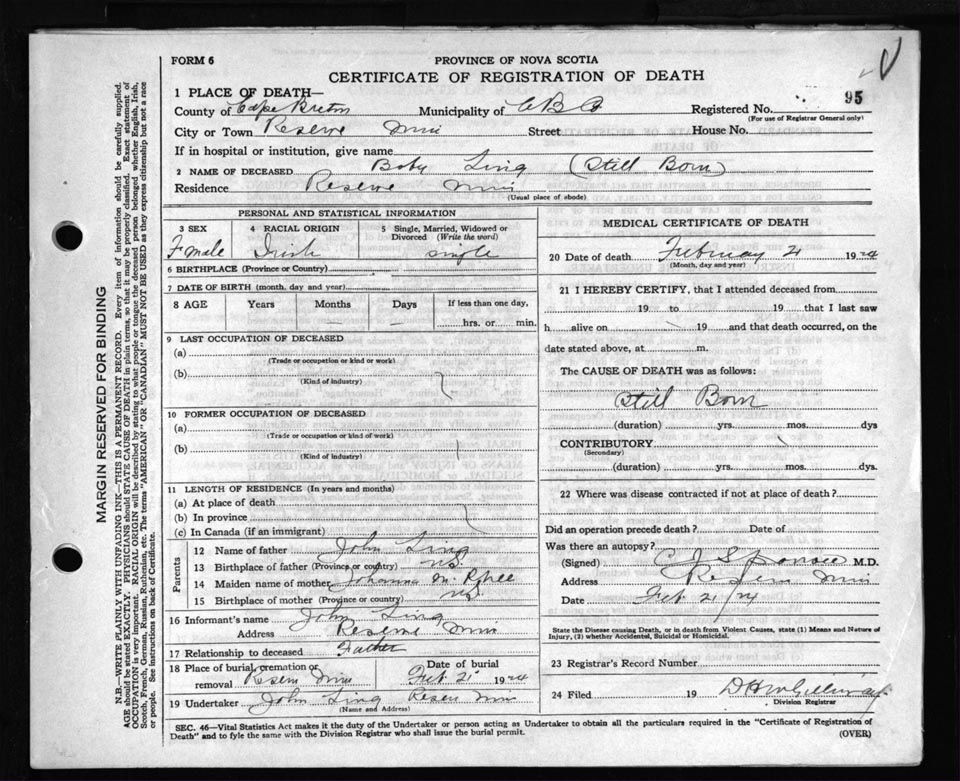 FORM 6
PROVINCE OF NOVA SCOTIA
CERTIFICATE OF REGISTRATION OF DEATH
1 PLACE OF DEATH—
County of Cape Breton Municipality of C B Co Registered No. 95
(For use of Registrar General only)
City or Town Reserve Mine Street House No.
If in hospital or institution, give name
2 NAME OF DECEASED Baby Ling (Still Born)
Residence Reserve Mine
(Usual place of abode)
PERSONAL AND STATISTICAL INFORMATION
3 SEX 4 RACIAL ORIGIN 5 Single, Married, Widowed or Divorced (Write the word)
Female Irish single
6 BIRTHPLACE (Province or Country)
7 DATE OF BIRTH (month, day and year)
8 AGE Years Months Days If less than one day,
hrs. or min.
9 LAST OCCUPATION OF DECEASED
(a)
(Trade or occupation or kind or work)
(b)
(Kind of industry)
10 FORMER OCCUPATION OF DECEASED
(a)
(Trade or occupation or kind of work)
(b)
(Kind of industry)
11 LENGTH OF RESIDENCE (In years and months)
(a) At place of death
(b) In province
(c) In Canada (if an immigrant)
Parents
12 Name of father John Ling
13 Birthplace of father (Province or country) N.S.
14 Maiden name of mother Johanna
15 Birthplace of mother (Province or country) N.S.
16 Informant's name John Ling
Address Reserve Mine
17 Relationship to deceased Father
18 Place of burial, cremation or removal Reserve Mine Date of burial Feb 21 1924
19 Undertaker John Ling Reserve Mine
(Name and Address)
MEDICAL CERTIFICATE OF DEATH
20 Date of death February 21 1924
(Month, day and year)
21 I HEREBY CERTIFY, that I attended deceased from
19 to 19 that I last saw
h alive on 19 and that death occurred, on the
date stated above, at m.
The CAUSE OF DEATH was as follows:
Still Born
(duration) yrs. mos. dys
CONTRIBUTORY
(Secondary)
(duration) yrs. mos. dys.
22 Where was disease contracted if not at place of death?
Did an operation precede death? Date of
Was there an autopsy?
(Signed) C J M.D.
Address Reserve Mine
Date Feb 21/24
State the Disease causing Death, or in death from Violent Causes, state (1) Means and Nature of
Injury, (2) whether Accidental, Suicidal or Homicidal.
23 Registrar's Record Number
24 Filed 19
Division Registrar
SEC. 46—Vital Statistics Act makes it the duty of the Undertaker or person acting as Undertaker to obtain all the particulars required in the "Certificate of Registration of
Death" and to fyle the same with the Division Registrar who shall issue the burial permit. (OVER)
MARGIN RESERVED FOR BINDING
N.B.—WRITE PLAINLY WITH UNFADING INK—THIS IS A PERMANENT RECORD. Every item of information should be carefully supplied.
AGE should be stated EXACTLY. PHYSICIANS should STATE CAUSE OF DEATH in plain terms, so that it may be properly classified. Exact statement of
OCCUPATION is very important. RACIAL ORIGIN will be described by stating to what people or tongue the deceased person belonged whether English, Irish,
Scotch, French, German, Russian, Ruthenian, etc. The terms "AMERICAN" OR "CANADIAN" MUST NOT BE USED as they express citizenship but not a race
or people. See instructions on back of Certificate.